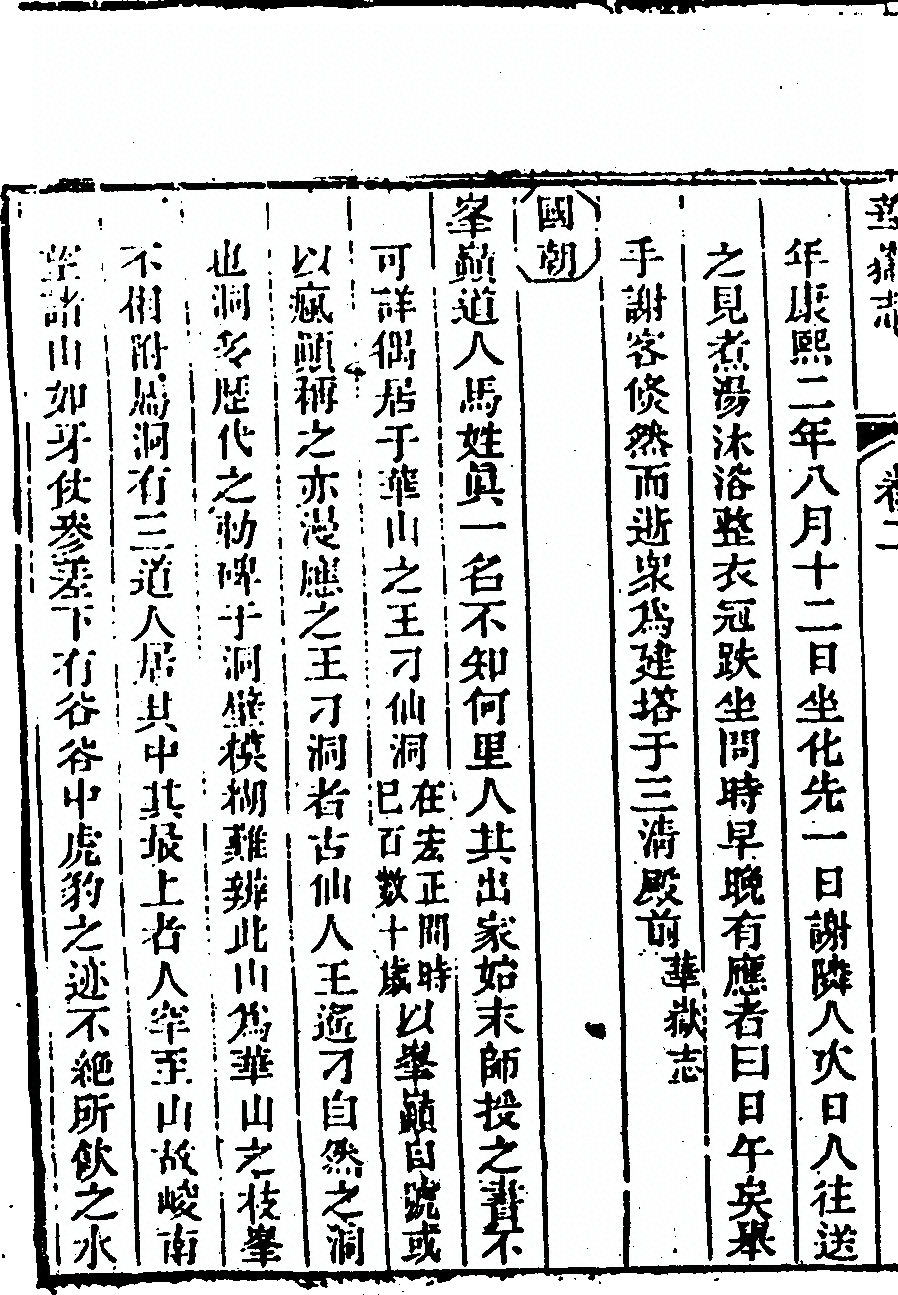 華嶽志 卷二
年康熙二年八月十二日坐化先一日謝隣人次日人往送
之見煮湯沐浴整衣冠趺坐問時早晚有應者曰日午矣舉
手謝客倐然而逝衆為建塔于三淸殿前華嶽志
國朝
峯巓道人馬姓眞一名不知何里人其出家始末師授之書不
可詳偶居于華山之王刁仙洞在宏正間時已百數十歲以峯巓自號或
以瘋顚稱之亦漫應之王刁洞者古仙人王遙刁自然之洞
也洞多歷代之勒碑于洞壁模糊難辨此山為華山之枝峯
不相附焉洞有三道人居其中其最上者人罕至山故峻南
望諸山如牙仗參差下有谷谷中虎豹之迹不絶所飮之水